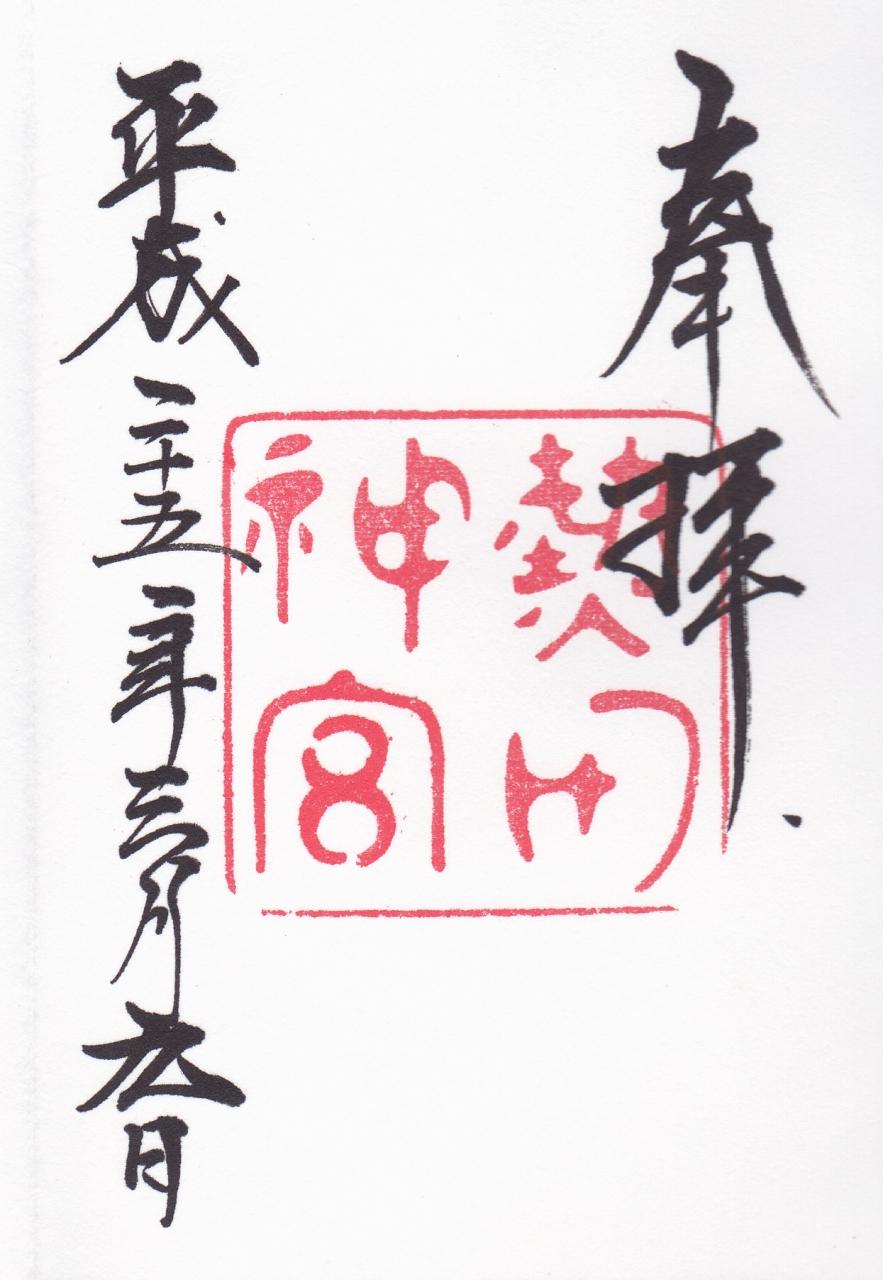 奉拝
熱田
神宮
平成二十五年三月九日